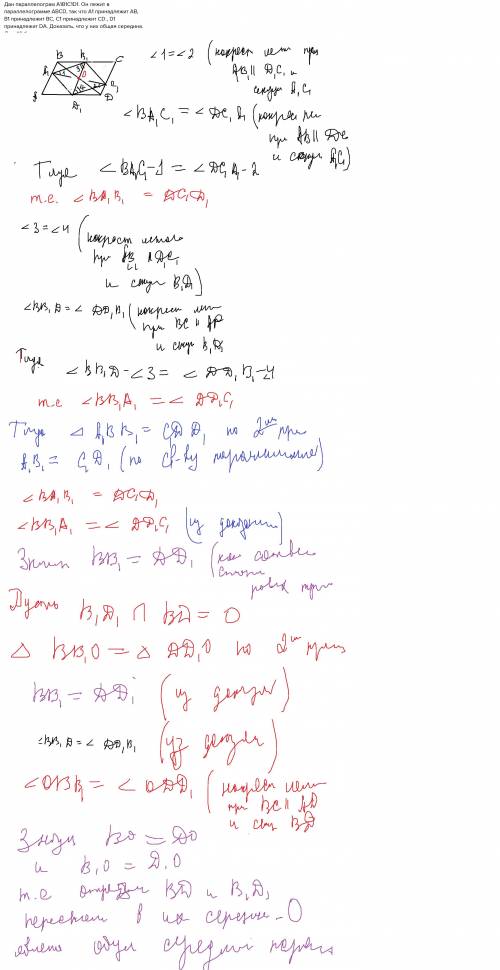 Дан параллелограм A1B1C1D1. Он лежит в
параллелограмме ABCD, так что A1 принадлежит AB,
B1 принадлежит BC, C1 принадлежит CD , D1
принадлежит DA. Доказать, что у них общая середина.
B B₁ C
A₁ O
A D₁ D
∠1=∠2 (накрест леж при
AB₁ || D₁C₁ и
секущ A₁C₁
∠BA₁C₁ = ∠DC₁A₁ (накрес ле
при AB || DC
и секущ A₁C₁)
Тогда ∠BA₁C₁-1 = ∠DC₁A₁-2
т.е. ∠BA₁B₁ = DC₁D₁
∠3=∠4 (накрест лежащ
и секущ B₁D₁)
∠BB₁D₁=∠DD₁B₁ (накрест леж
при BC || AD
и секущ B₁D₁
Тогда
∠BB₁D-∠3=∠DD₁B₁-∠4
т.е ∠BB₁A₁ =∠DD₁C₁
Тогда △ A₁BB₁= C₁DD₁ по 2ᵐ при
A₁B₁= C₁D₁ (по св-ву параллелограмма)
∠BA₁B₁ = DC₁D₁
∠BB₁A₁ =∠ DD₁C₁ (из доказан)
Значит BB₁= DD₁ (как соответ
сторон
равных треуг
Пусть B₁D₁ ∩ BD = O
△ BB₁O = △ DD₁O по 2ᵐ призн
BB₁= DD₁ (из доказан)
∠BB₁D=∠ DD₁B₁ (из доказан)
∠OBB₁=∠ODD₁ (накрест леж
при BC || AD
и секущ BD
Значит BO = DO
и B₁O = D₁O
т.е отрезки BD и B₁D₁
пересекаются в их середине - O